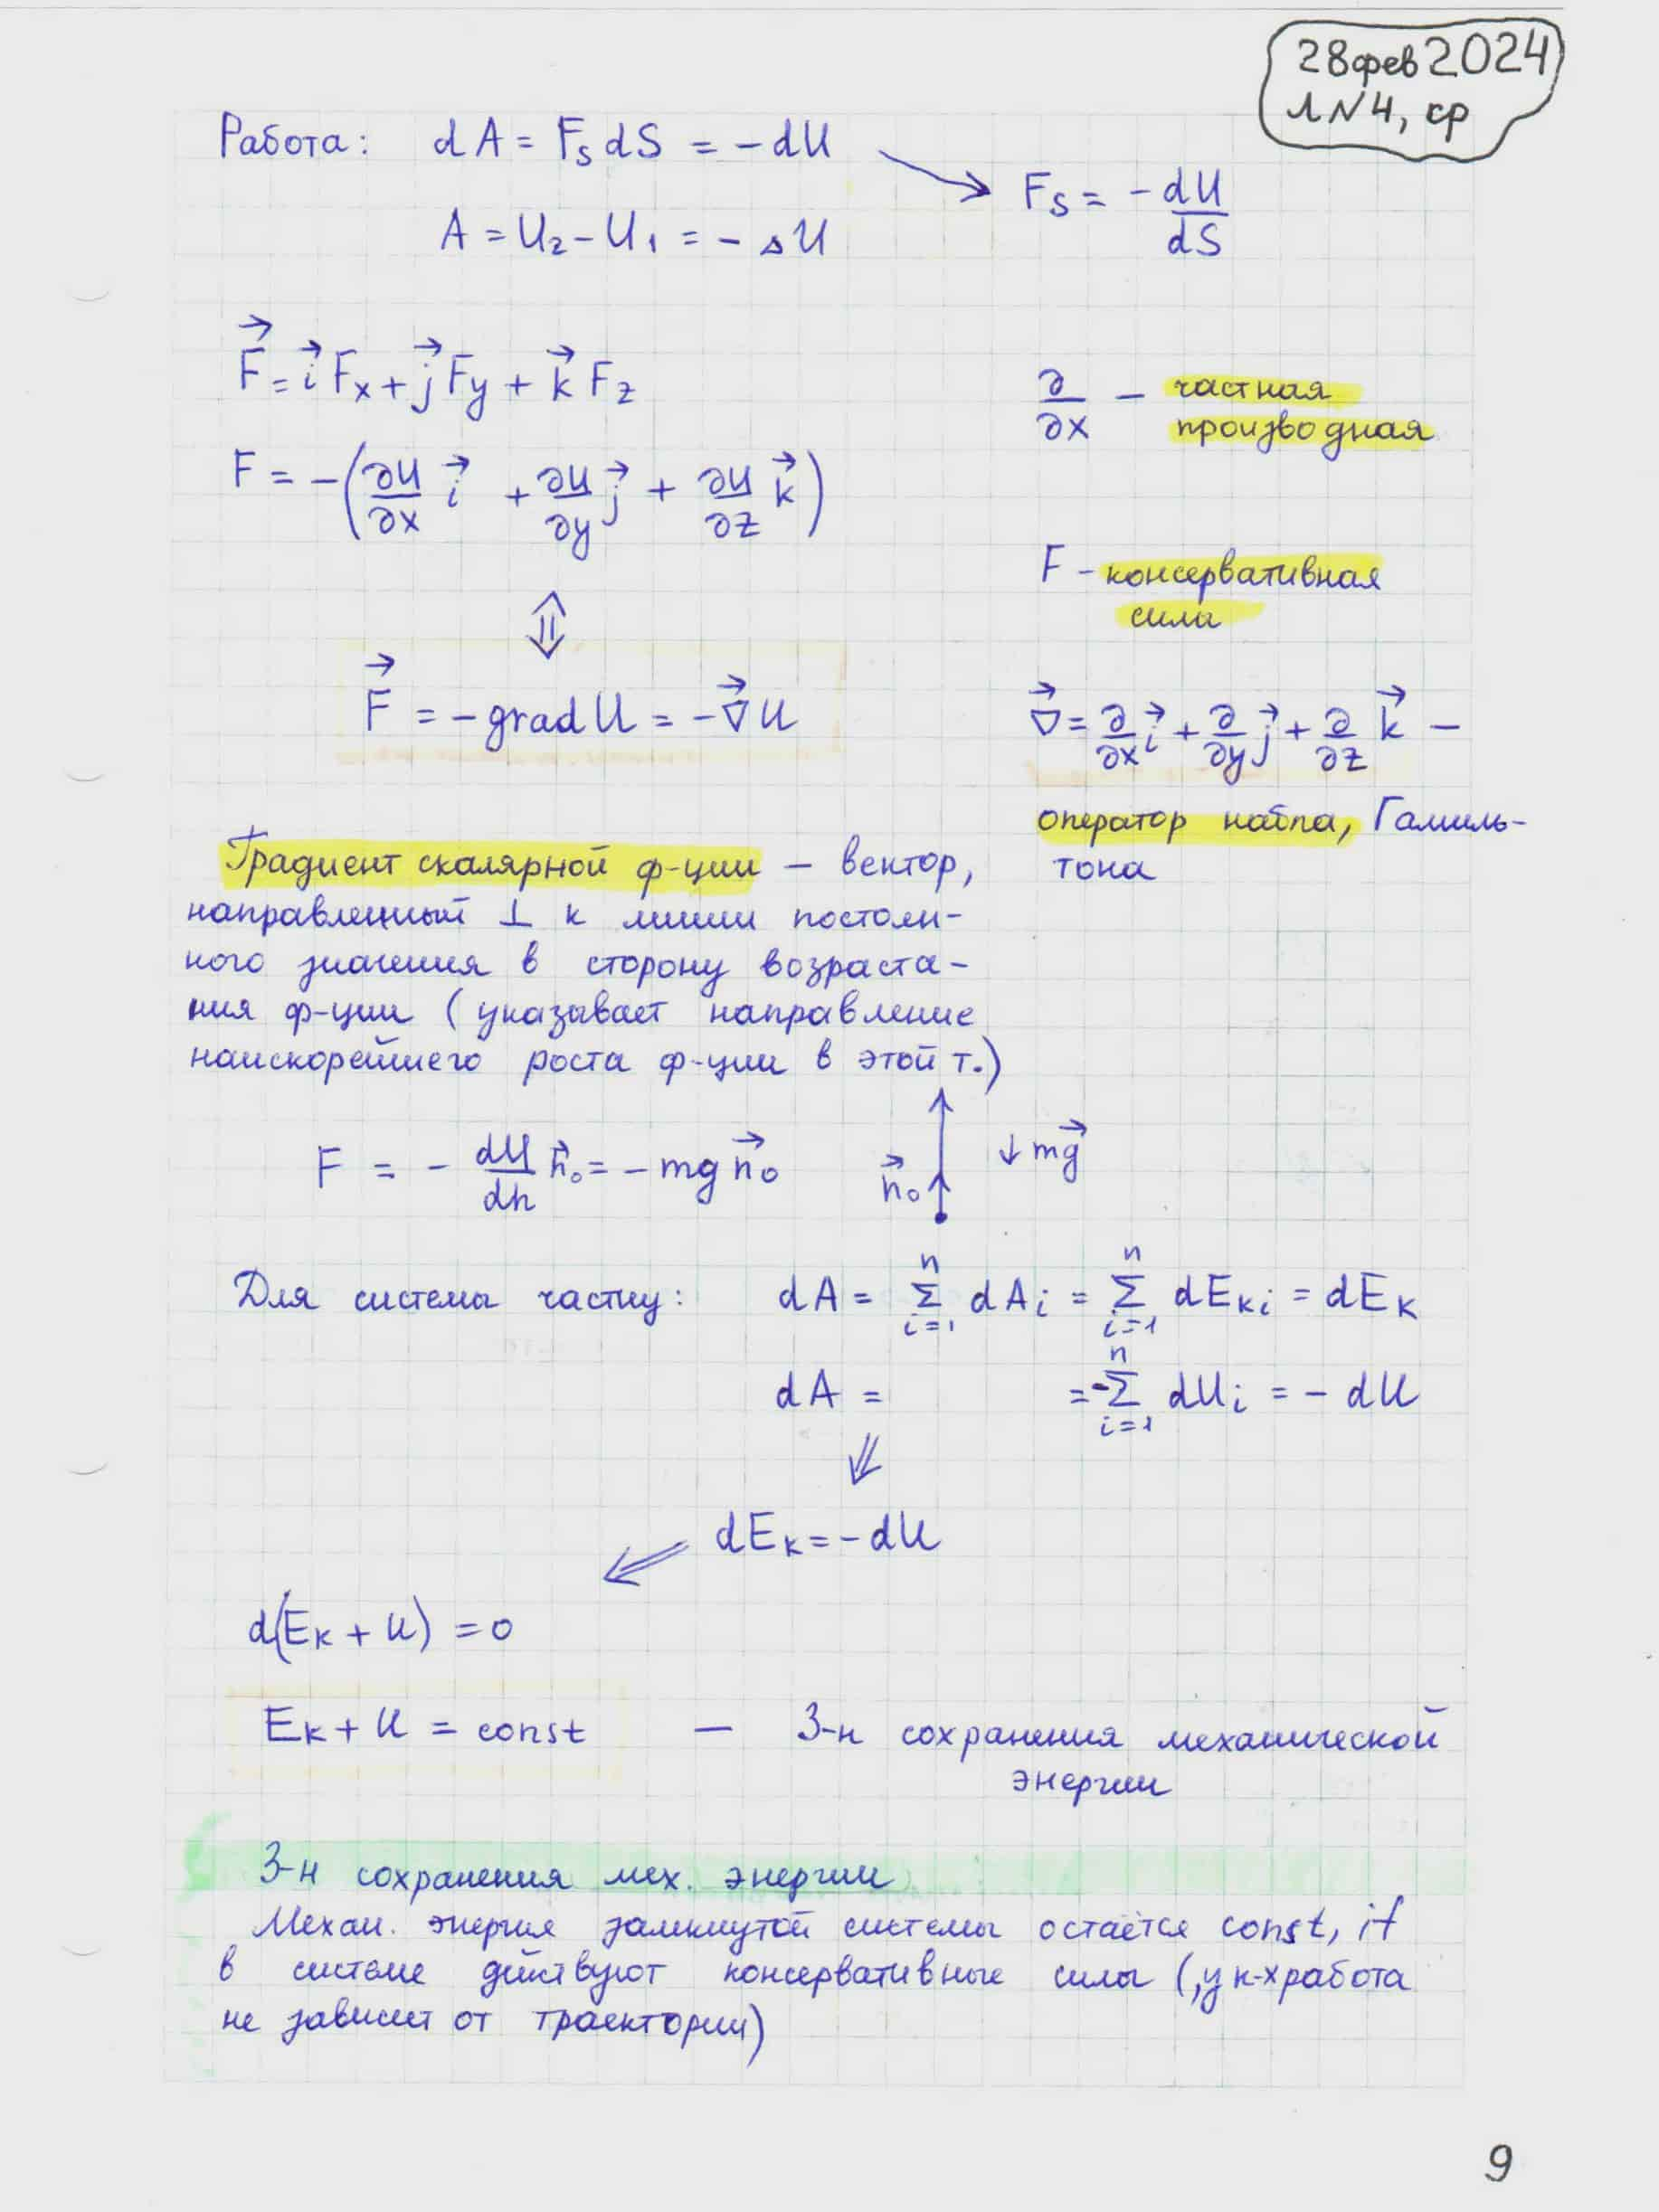 28фев2024
ЛN4, ср
Работа: dA = F_S dS = -dU
F_S = -dU/dS
A = U₂ - U₁ = -ΔU
F⃗ = i⃗ Fx + j⃗ Fy + k⃗ Fz
∂/∂x — частная
производная
F = -(∂U/∂x i⃗ + ∂U/∂y j⃗ + ∂U/∂z k⃗)
F - консервативная
сила
⇕
F⃗ = -grad U = -∇⃗U
∇⃗ = ∂/∂x i⃗ + ∂/∂y j⃗ + ∂/∂z k⃗ —
оператор набла, Гамиль-
тона
Градиент скалярной ф-ции — вектор,
направленный ⊥ к линии постоян-
ного значения в сторону возраста-
ния ф-ции (указывает направление
наискорейшего роста ф-ции в этой т.)
F = - dU/dh n⃗₀ = -mg n⃗₀
n⃗₀ ↓mg⃗
Для системы частиц: dA = Σ_{i=1}^{n} dAi = Σ_{i=1}^{n} dEкi = dEк
dA = = -Σ_{i=1}^{n} dUi = -dU
⇓
dEк = -dU
d(Eк + U) = 0
Eк + U = const — З-н сохранения механической
энергии
З-н сохранения мех. энергии
Механ. энергия замкнутой системы остаётся const, if
в системе действуют консервативные силы (,у к-х работа
не зависит от траектории)
9